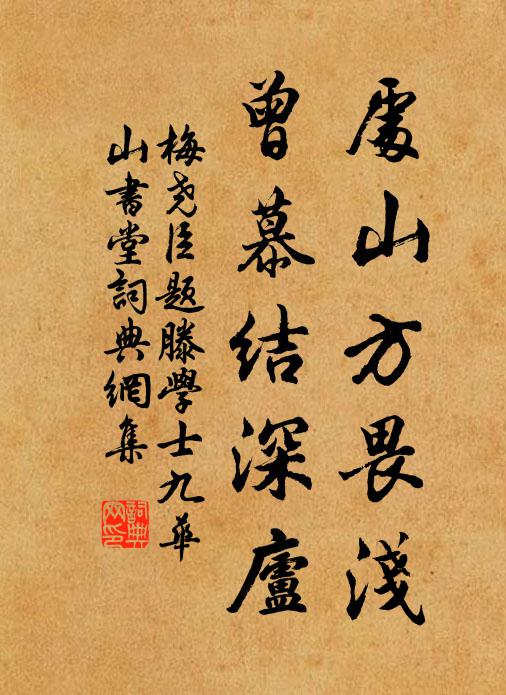 處山方畏淺
曾慕結深廬
梅堯臣題滕學士九華
山書堂詞典網集
詞典
网印